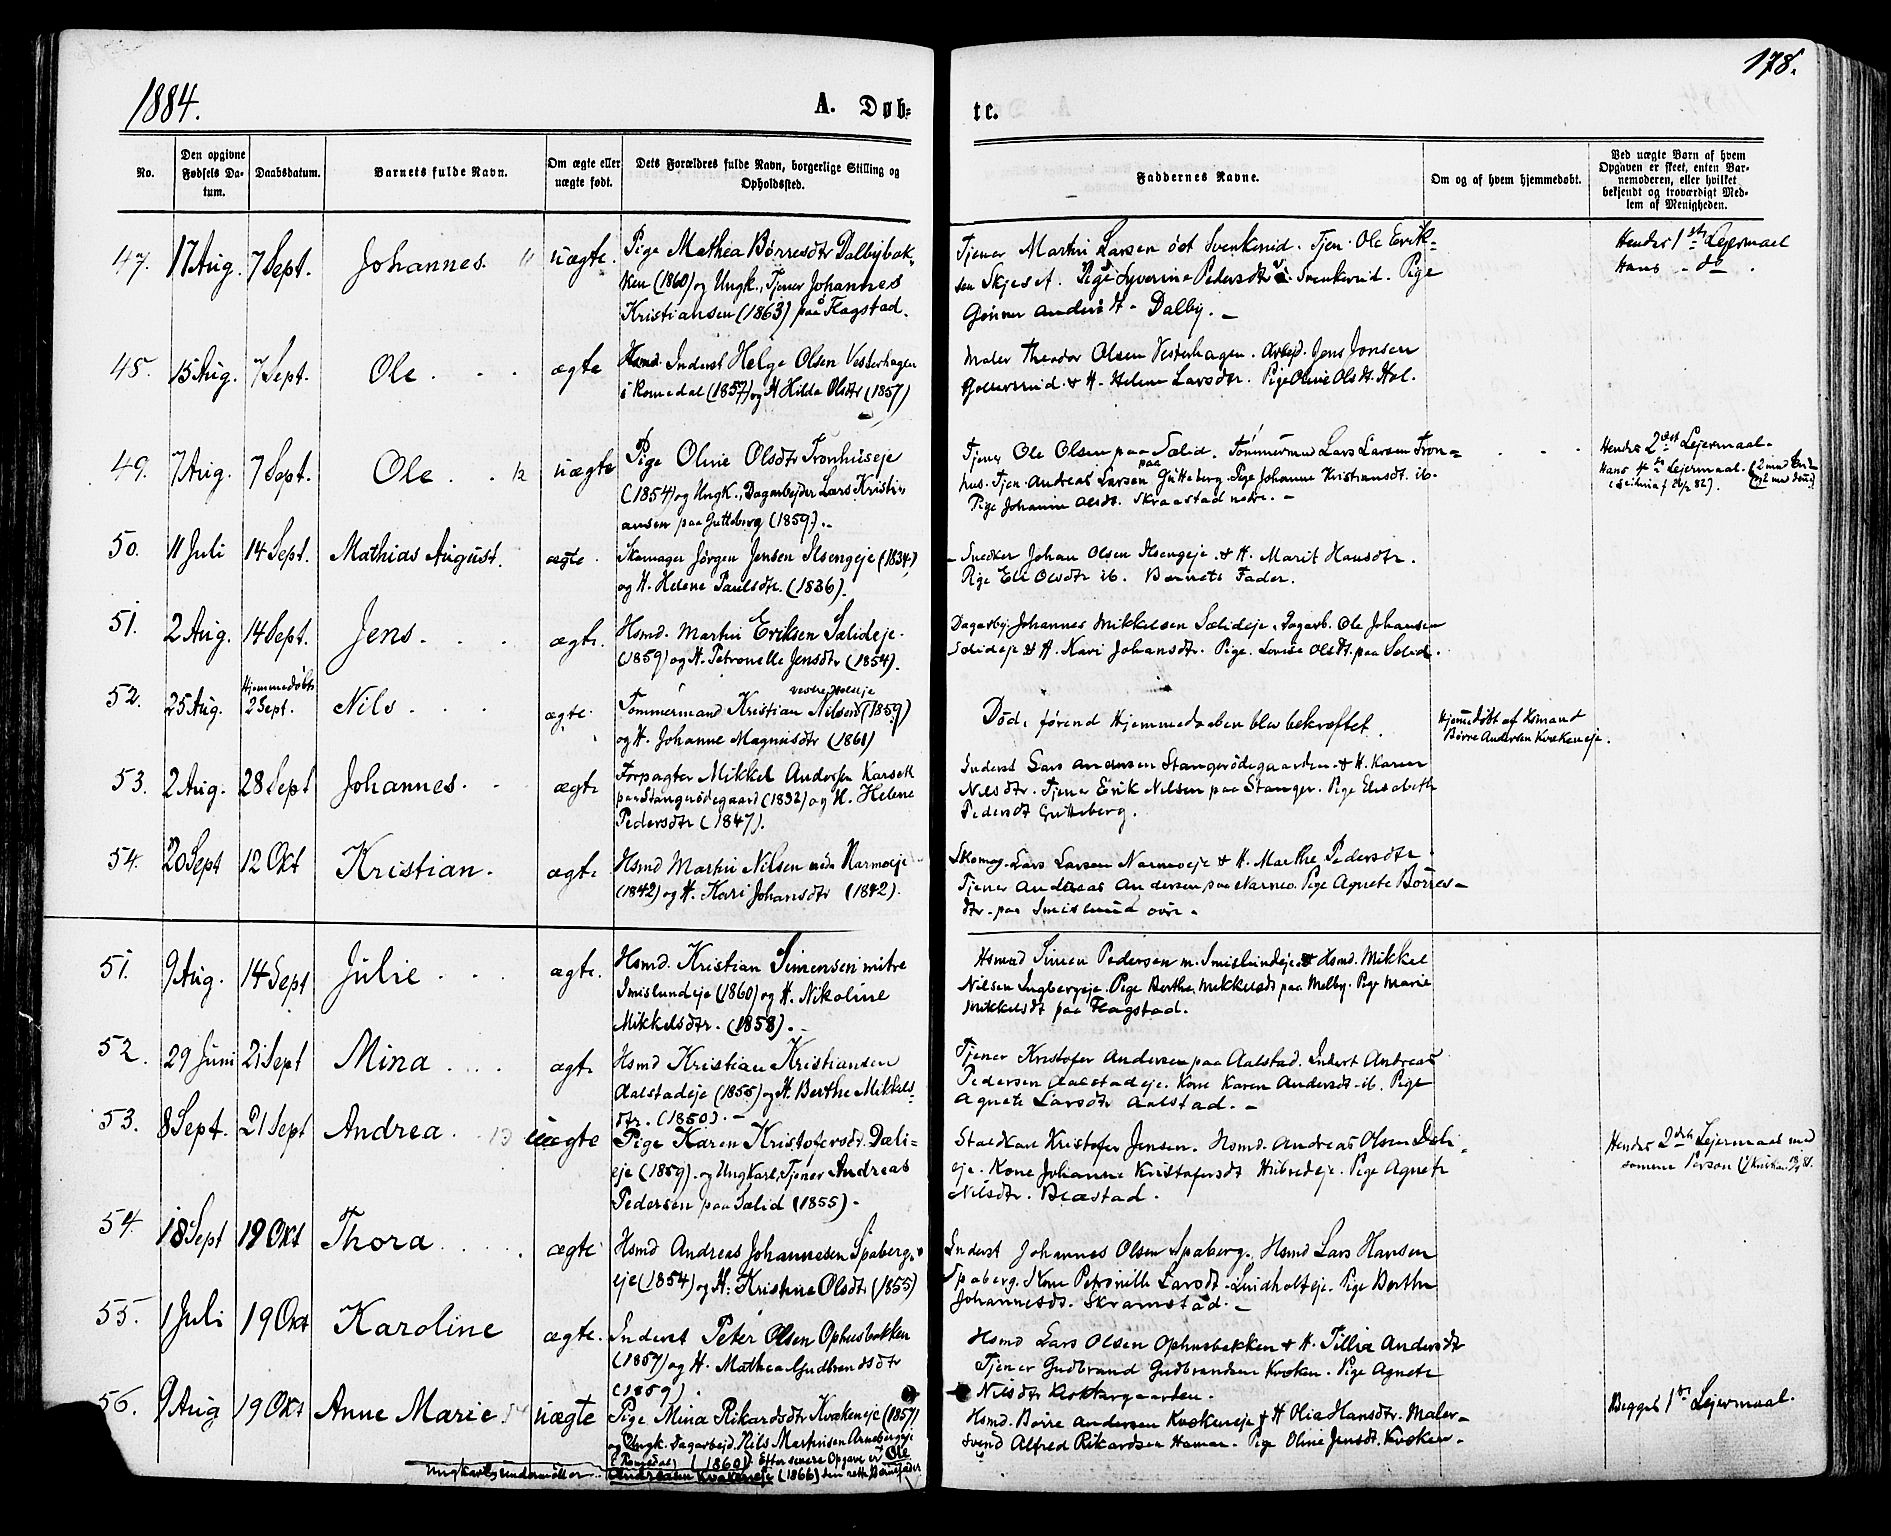 1884.
A. Døb=
te.
178.
No.
Den opgivne Fødsels Da-tum.
Daabsdatum.
Barnets fulde Navn.
Om ægte eller uægte født.
Dets Forældres fulde Navn, borgerlige Stilling og Opholdssted.
Faddernes Navne.
Om og af hvem hjemmedøbt.
Ved uægte Børn af hvem Opgaven er skeet, enten Bar-nemoderen, eller hvilket bekjendt og troværdigt Med-lem af Menigheden.
47. 17 Aug. 7 Sept. Johannes. 11 uægte. Pige Mathea Børresdtr Dalbybak-
ken (1860) og Ungk., Tjener Johannes
Kristiansen (1863) paa Flagstad.
Tjener Martin Larsen Svenkerud. Tjen. Ole Erik-
sen Pige Syverine Pedersdtr Svenkerud. Pige
Dalby.
Hendes 1ste Lejermaal
Hans do.
48. 15 Aug. 7 Sept. Ole ægte Hsmd. Inderst Helge Olsen Vesterhagen
i Romedal (1857) og H. Hilda Olsdtr (1857)
Maler Theodor Olsen Vesterhagen. Arbejd. Jens Jonsen
& H. Helene Larsdtr. Pige Oline Olsdt. Hol.
49. 7 Aug. 7 Sept. Ole 12 uægte Pige Oline Olsdtr Tronhuseje
(1854) og Ungk., Dagarbejder Lars Kristi-
ansen paa Gutteberg (1859).
Tjener Ole Olsen paa Sælid. Tømmermd Lars Larsen Tron=
hus. Tjen. Andreas Larsen paa Gutteberg. Pige Johanne Kristiansdt. ib.
Pige Johanne Olsdt. Skraastad nedre.
Hendes 2det Lejermaal.
Hans Lejermaal.
50. 11 Juli 14 Sept. Mathias August. ægte. Skomager Jørgen Jensen Ilsengeje (1834)
og H. Helene Paulsdtr. (1836).
Snedker Johan Olsen Ilsengeje & H. Marit Hansdtr.
Pige Eli Olsdtr ib. Barnets Fader.
51. 2 Aug. 14 Sept. Jens. ægte. Hsmd. Martin Eriksen Sælideje.
(1859) og H. Petronelle Jensdtr (1854).
Dagarbj. Johannes Mikkelsen Sælideje, Dagarb. Ole Johansen
Sælideje & H. Kari Johansdtr. Pige Lovise Olsdt. paa Sælid.
52. 25 Aug. Hjemmedøbt 2 Sept. Nils. ægte. Tømmermand Kristian Nilsen (1859)
og H. Johanne Magnusdtr (1861)
Død, førend Hjemmedaaben blev bekræftet.
Hjemedøbt af Hsmand
Børre Andersen Kvækeneje.
53. 2 Aug. 28 Sept Johannes. ægte Forpagter Mikkel Andersen Karseth
paa Stangerødegaard (1832) og H. Helene
Pedersdtr (1847).
Inderst Lars Andersen Stangerødegaarden & H. Karen
Nilsdtr. Tjener Erik Nilsen paa Stanger. Pige Elisabeth
Pedersdt Gutteberg.
54. 20 Sept 12 Okt Kristian. ægte Hsmd Martin Nilsen nedr Narmoeje
(1842) og H. Kari Johansdtr (1842).
Skomag. Lars Larsen Narmoeje & H. Marthe Pedersdtr
Tjener Andreas Andersen paa Narmo. Pige Agnete Børres-
dtr. paa Imislund øvre.
51. 9 Aug. 14 Sept Julie ægte. Hsmd. Kristian Simensen mitre
Imislundeje (1860) og H. Nikoline
Mikkelsdtr. (1858).
Hsmd Simen Pedersen m. Imislundeje & Hsmd. Mikkel
Nilsen Ingbergeje. Pige Berthe Mikkelsdt paa Melby. Pige Marie
Mikkelsdt paa Flagstad.
52. 29 Juni 21 Sept Mina ægte Hsmd Kristian Kristiansen
Aalstadeje (1855) og H. Berthe Mikkels-
dtr. (1850).
Tjener Kristofer Andersen paa Aalstad. Inderst Andreas
Pedersen Aalstadeje. Kone Karen Andersdt. ib. Pige
Agnete Larsdtr Aalstad.
53. 8 Sept. 21 Sept Andrea 13 uægte Pige Karen Kristofersdt. Dæli-
eje (1859). og Ungkarl, Tjener Andreas
Pedersen paa Sælid (1855).
Staldkarl Kristofer Jensen. Hsmd. Andreas Olsen Dæli-
eje. Kone Johanne Kristofersdt Hubredeje. Pige Agnete
Nilsdtr. Bræstad.
Hendes 2det Lejermaal med
samme Person
54. 18 Sept 19 Okt Thora ægte Hsmd Andreas Johannesen Spaberg-
eje (1854) og H. Kristine Olsdtr (1855)
Inderst Johannes Olsen Spaberg. Hsmd Lars Hansen
Spaberg. Kone Petronille Larsdt. Lindholteje. Pige Berthe
Johannesdt. Skramstad.
55. 1 Juli 19 Okt Karoline ægte. Inderst Peter Olsen Ophusbakken
(1857) og H. Mathea Gudbrandsdtr
(1859).
Hsmd Lars Olsen Ophusbakken & H. Tillia Andersdt
Tjener Gudbrand Gudbrandsen Kvæken. Pige Agnete
Nilsdtr
56. 9 Aug 19 Okt Anne Marie 14 uægte Pige Mina Rikardsdtr Kvækeneje (1857)
og Ungk. Dagarbejd. Nils Martinsen Arnebergeje
i Romedal (1860). Efter senere Opgave er Ole
Andreasen Kvækeneje (1866) den rette Barnefader
Hsmd. Børre Andersen Kvækeneje & H. Olia Hansdtr. Maler-
svend Alfred Rikardsen Hamar. Pige Oline Jensdt. Kvæken.
Begges 1ste Lejermaal.